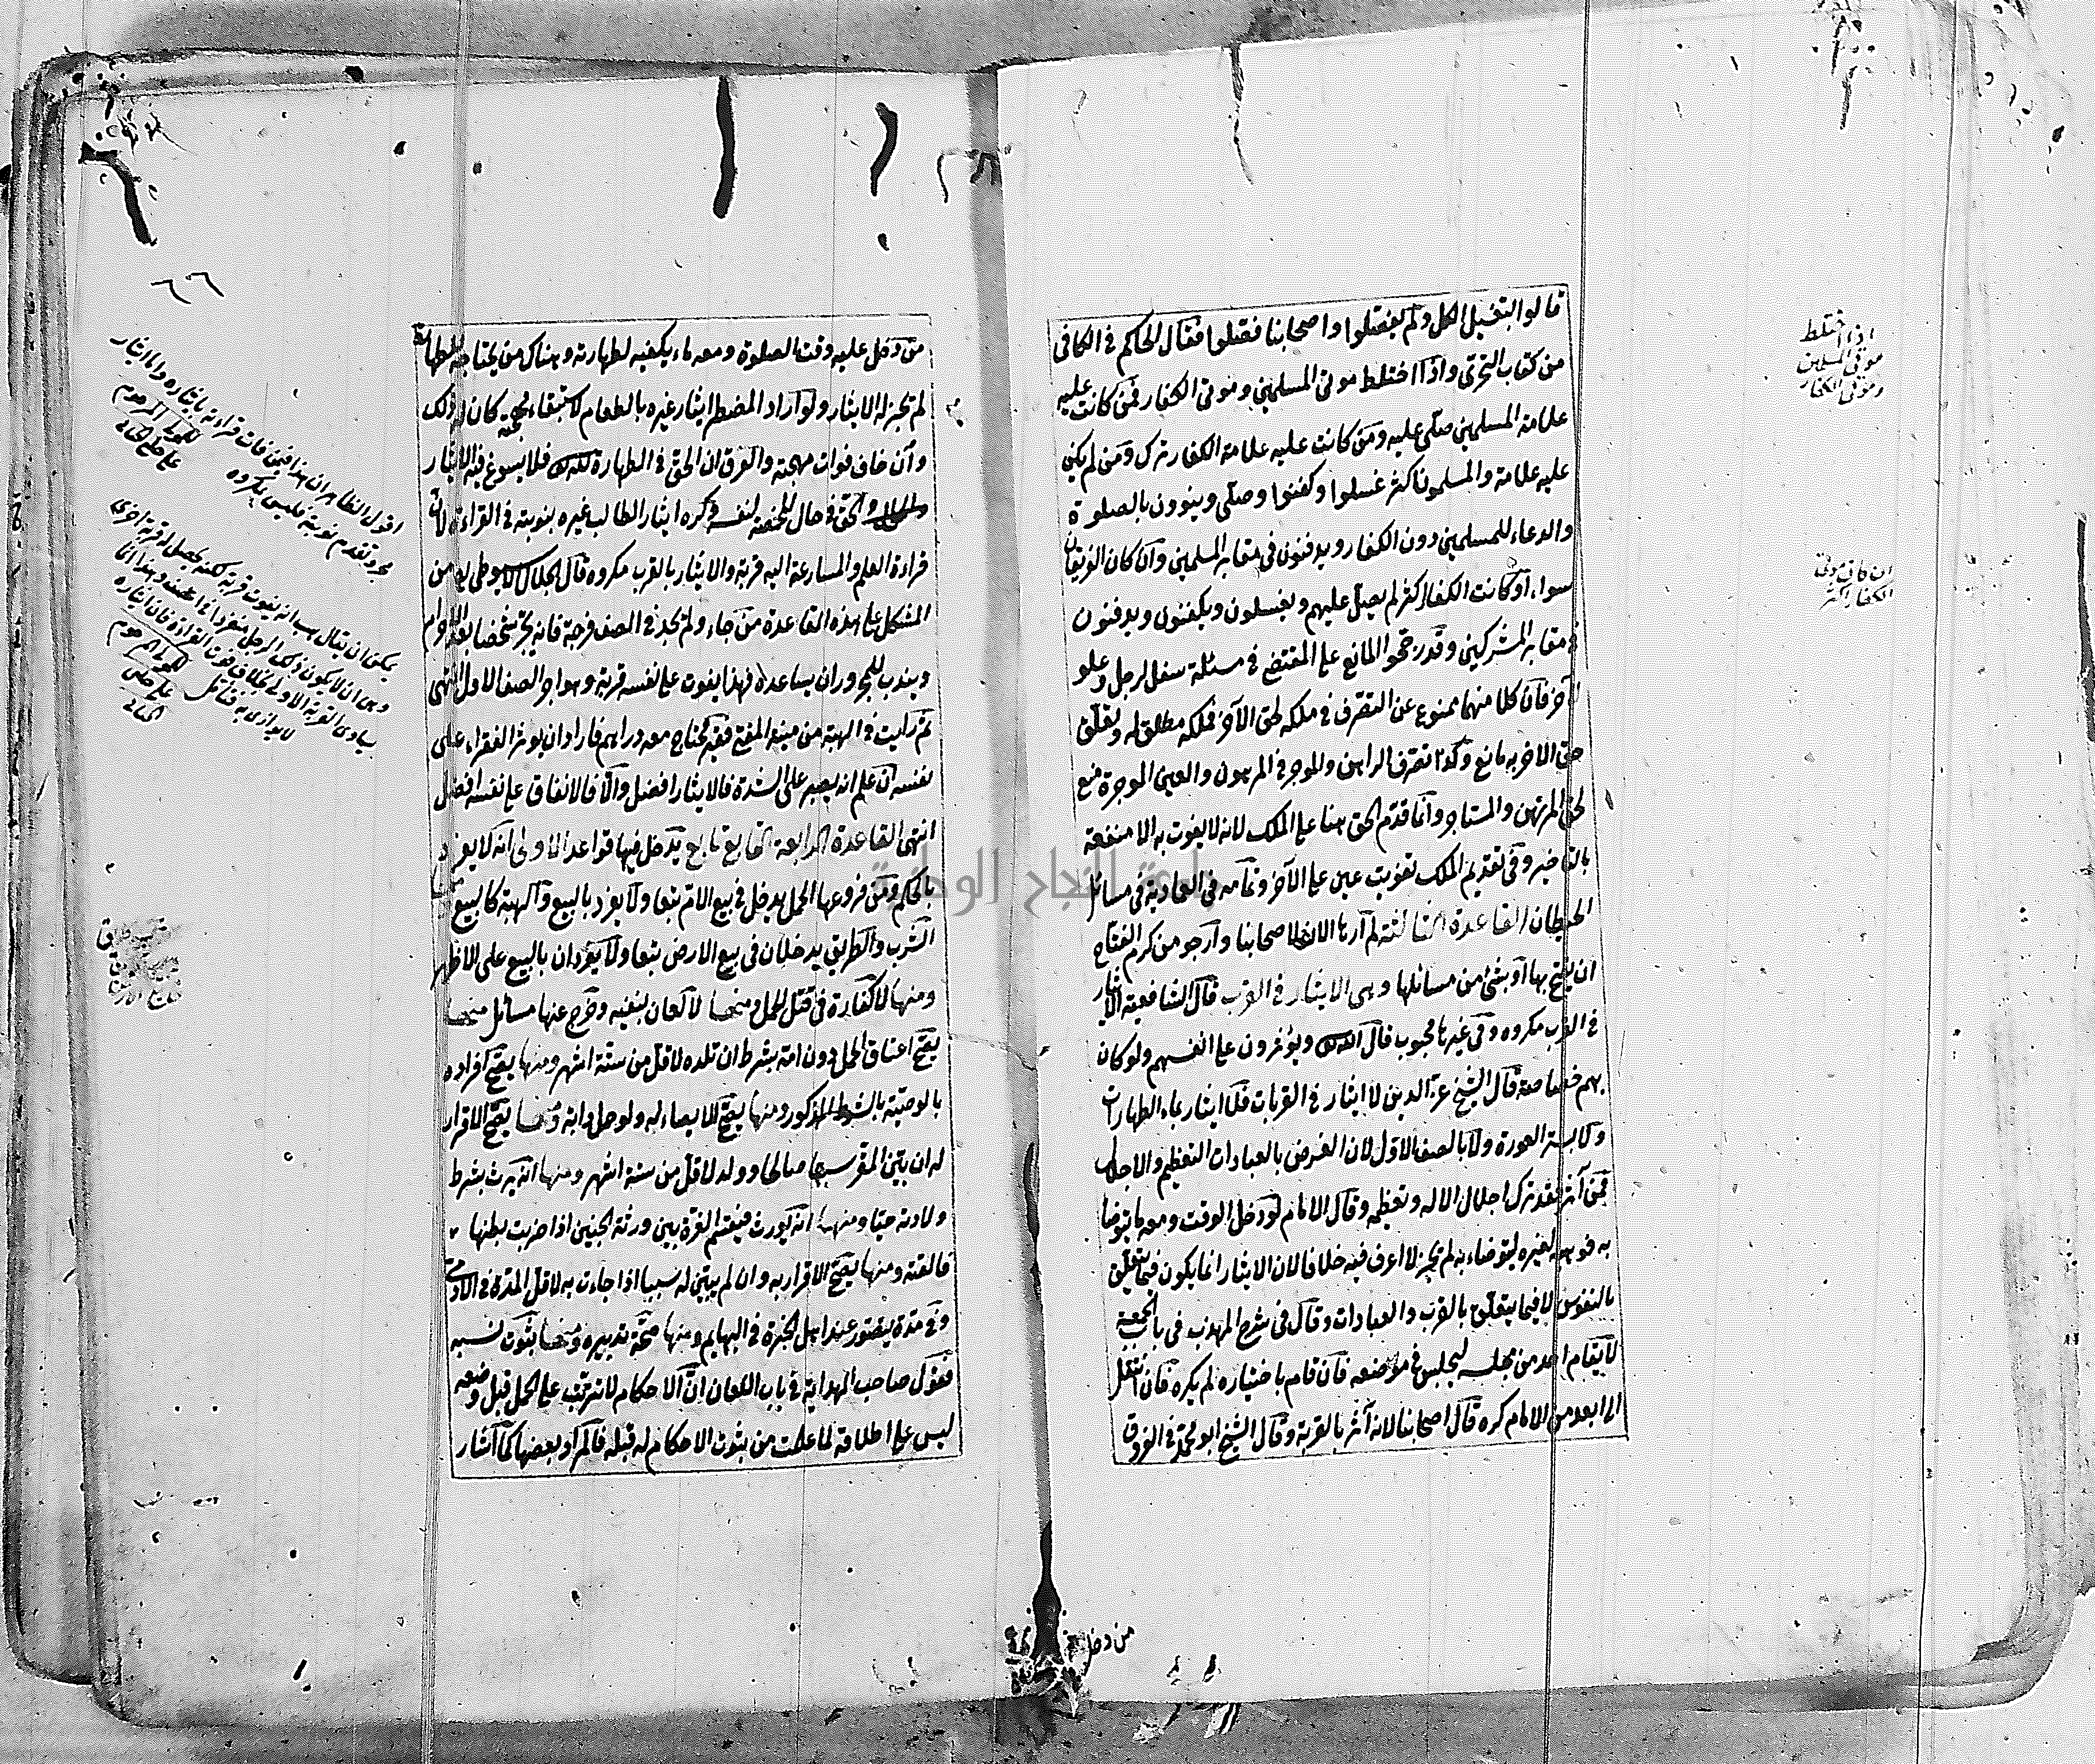 قالوا بتغسيل الكل ولم يفصلوا واصحابنا فصلوا فقال الحاكم في الكافي
من كتاب التحري واذا اختلط موتى المسلمين وموتى الكفار فمن كانت عليه
علامة المسلمين صلى عليه ومن كانت عليه علامة الكفار ترك ومن لم يكن
عليه علامة والمسلمون اكثر غسلوا وكفنوا وصلى وينوون بالصلوة
والدعاء للمسلمين دون الكفار ويدفنون في مقابر المسلمين وان كان الفريقان
سواء او كانت الكفار اكثر لم يصل عليهم ويغسلون ويكفنون ويدفنون
في مقابر المشركين وقد رجحوا المانع على المقتضي في مسئلة سفل لرجل وعلو
لآخر فان كلا منهما ممنوع عن التصرف في ملكه لحق الآخر فملكه مطلق له وتعلق
حق الاخر به مانع وكذا تصرف الراهن والموجر في المرهون والعين الموجرة منع
لحق المرتهن والمستاجر وانما قدم الحق هنا على الملك لانه لا يفوت به الا منفعة
بالتاخير وفي تقديم الملك تفويت عين على الآخر وتمامه في العمادية في مسائل
الحيطان القاعدة الثالثة لم ارها الان لاصحابنا وارجو من كرم الفتاح
ان يفتح بها او بشئ من مسائلها وهي الايثار في القرب قال الشافعية الايثار
في القرب مكروه وفي غيرها محبوب قال الله ويؤثرون على انفسهم ولو كان
بهم خصاصة قال الشيخ عز الدين لا ايثار في القربات فلا ايثار بماء الطهارات
ولا بستر العورة ولا بالصف الاول لان الغرض بالعبادات التعظيم والاجلال
فمن آثر فقد ترك اجلال الاله وتعظيمه وقال الامام لو دخل الوقت ومعه ما يتوضا
به فوهبه لغيره ليتوضاء به لم يجز لا اعرف فيه خلافا لان الايثار انما يكون فيما يتعلق
بالنفوس لا فيما يتعلق بالقرب والعبادات وقال في شرح المهذب في باب الجمعة
لا يقام احد من مجلسه ليجلس في موضعه فان قام باختياره لم يكره فان انتقل
الى ابعد من الامام كره قال اصحابنا لانه آثر بالقربة وقال الشيخ ابو محمد في الفروق
من دخل
اذا اختلط
موتى المسلمين
وموتى الكفار
ان كان موتى
الكفار اكثر
من دخل عليه وقت الصلوة ومعه ماء يكفيه لطهارته وهناك من يحتاجه للطهارة
لم يجز له الايثار ولو اراد المضطر ايثار غيره بالطعام لاستبقاء مهجته كان له ذلك
وان خاف فوات مهجته والفرق ان الحق في الطهارة لله فلا يسوغ فيه الايثار
والحق في حال المخمصة لنفسه وكره ايثار الطالب غيره بنوبته في القراءة لان
قراءة العلم والمسارعة اليه قربة والايثار بالقرب مكروه قال الجلال السيوطي من
المشكل على هذه القاعدة من جاء ولم يجد في الصف فرجة فانه يجر شخصا بعد الاحرام
ويندب للمجرور ان يساعده فهذا يفوت على نفسه قربة وهو اجر الصف الاول انتهى
ثم رايت في الهبة من منية المفتي فقير محتاج معه دراهم فاراد ان يوثر الفقراء على
نفسه ان علم انه يصبر على الشدة فالايثار افضل والا فالانفاق على نفسه افضل
انتهى القاعدة الرابعة التابع تابع يدخل فيها قواعد الاولى انه لا يفرد
بالحكم ومن فروعها الحمل يدخل في بيع الام تبعا ولا يفرد بالبيع والهبة كالبيع
الشرب والطريق يدخلان في بيع الارض تبعا ولا يفردان بالبيع على الاظهر
ومنها لا كفارة في قتل الحمل ومنها لا لعان بنفيه وخرج عنها مسائل منها
يصح اعتاق الحمل دون امه بشرط ان تلده لاقل من ستة اشهر ومنها يصح افراده
بالوصية بالشرط المذكور ومنها يصح الايصاء له ولو حمل دابة ومنها يصح الاقرار
له ان بين المقر سببا صالحا وولد لاقل من ستة اشهر ومنها انه يرث بشرط
ولادته حيا ومنها انه يورث فيقسم الغرة بين ورثة الجنين اذا ضربت بطنها
فالقته ومنها يصح الاقرار به وان لم يبين له سببا اذا جاءت به لاقل المدة في الآدمي
وفي مدة يتصور عند اهل الخبرة في البهايم ومنها صحة تدبيره ومنها ثبوت نسبه
فقول صاحب الهداية في باب اللعان ان الاحكام لا تترتب على الحمل قبل وضعه
ليس على اطلاقه لما علمت من ثبوت الاحكام له قبله فالمراد بعضها كما اشار
اقول الظاهر ان
بمجرد تقدم نوبته فليس بمكروه
يمكن ان يقال
جامعة النجاح الوطنية